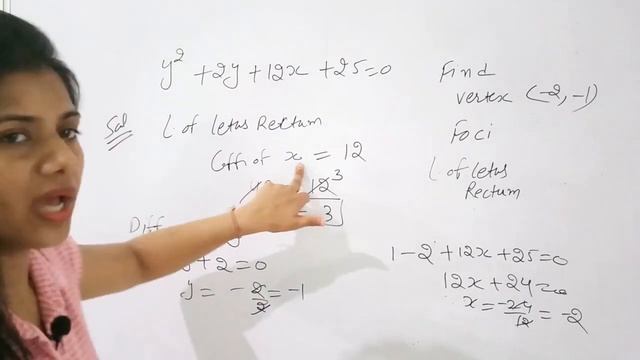 y² + 2y + 12x + 25 = 0
Sol L of letus Rectum
Coffi of x = 12
12 3
3
Diff
y + 2 = 0
y = - 2/2 = -1
Find
vertex (-2, -1)
Foci
L of letus
Rectum
1 - 2 + 12x + 25 = 0
12x + 24 = 0
x = -24/12 = -2